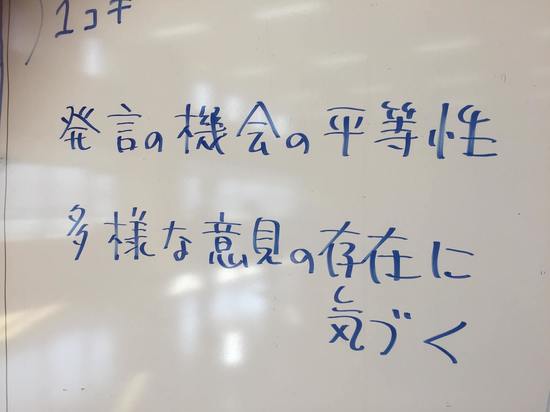 1コキ
発言の機会の平等性
多様な意見の存在に
気づく